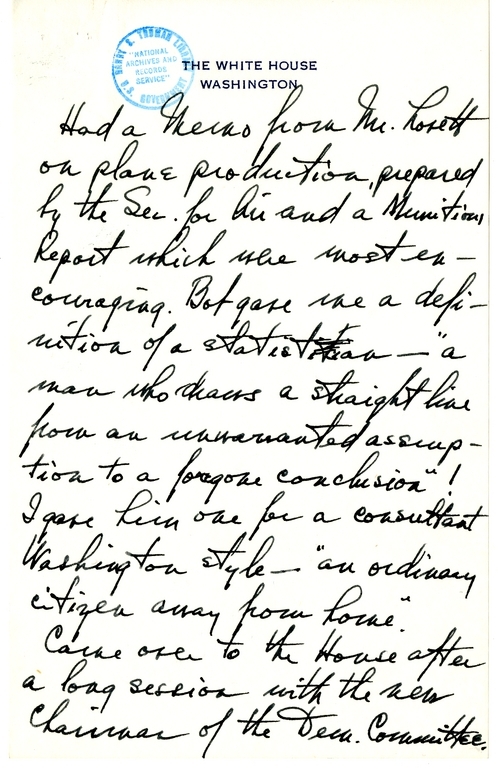 HARRY S. TRUMAN LIBRARY
"NATIONAL
ARCHIVES AND
RECORDS
SERVICE"
U.S. GOVERNMENT
THE WHITE HOUSE
WASHINGTON
Had a Memo from Mr. Lovett
on plane production, prepared
by the Sec. for Air and a Munitions
Report which were most en-
couraging. Bob gave me a defi-
nition of a statistian — "a
man who draws a straight line
from an unwarranted assump-
tion to a foregone conclusion"!
I gave him one for a consultant
Washington style — "an ordinary
citizen away from home".
Came over to the House after
a long session with the new
Chairman of the Dem. Committee.